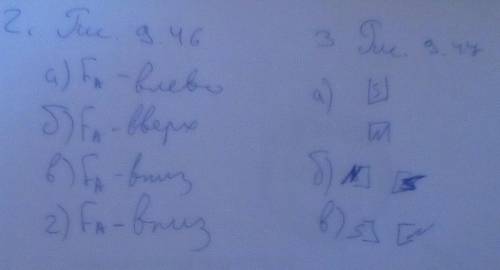 2. Рис. 9.46
а) FА - влево
б) FА - вверх
в) FА - вниз
г) FА - вниз
3 Рис. 9.47
а) S
N
б) N S
в) S N